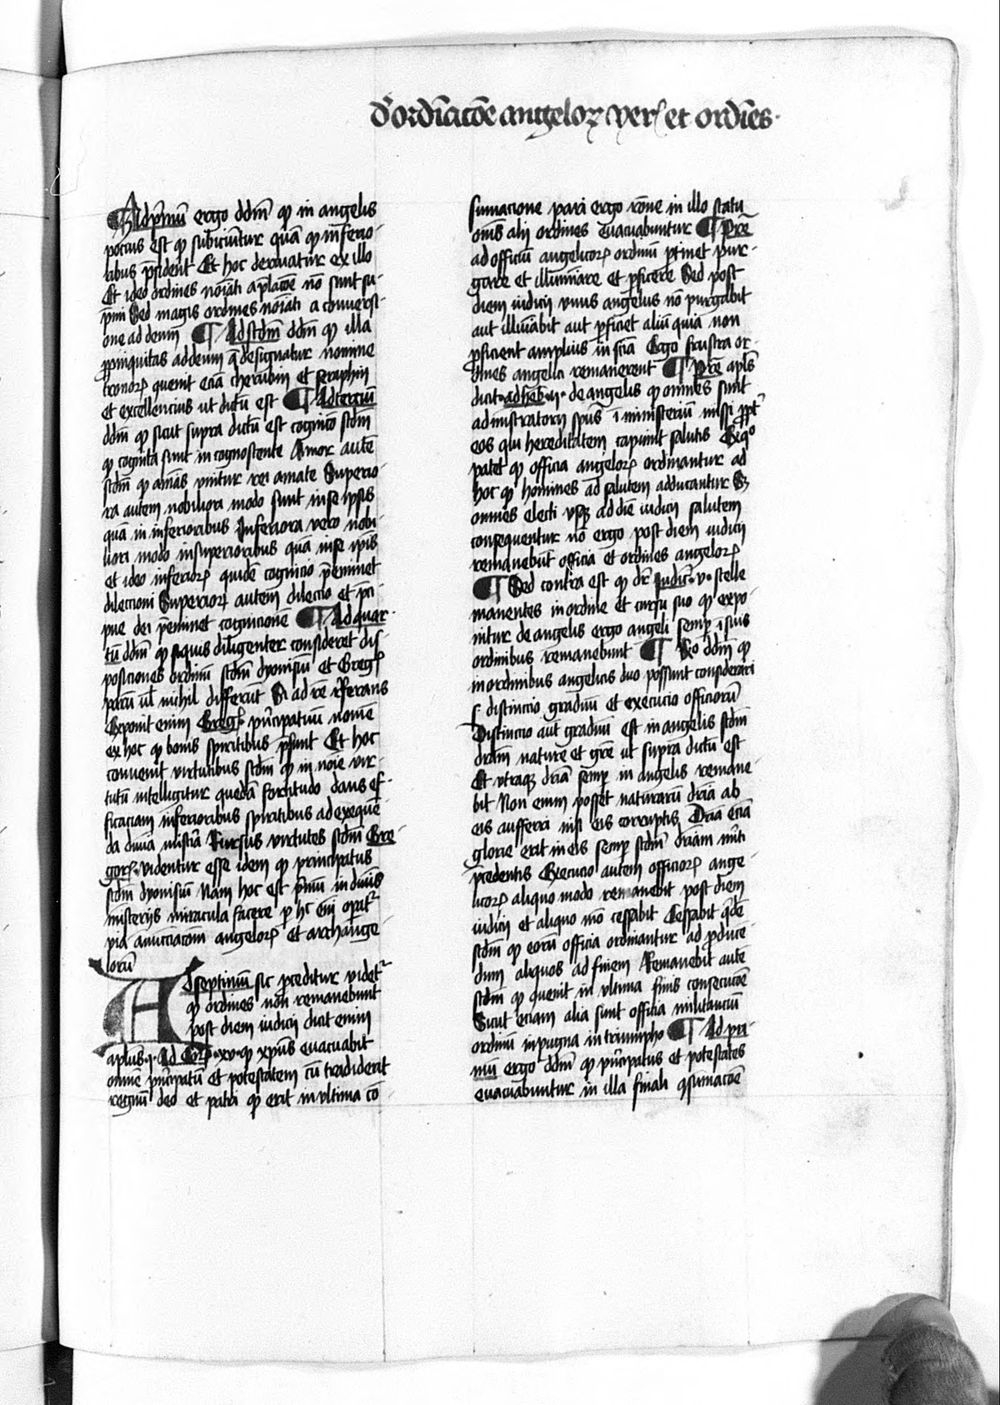 d' ordīacōe angeloꝝ per et ordīes·
¶ Ad pͥmū ergo dd̄m ꝙ in angelis
pocius est ꝙ subiciūtur quā ꝙ īferio-
ribus p̄sident Et hoc deriuatur ex illo
Et ideo ordines noīati a placōe nō sunt su-
p̄mi Sed magis ordines noīati a conuersi-
one ad deum ¶ Ad scd̄m dd̄m ꝙ illa
ꝓpinquitas ad deum q̄ designatur nomine
tronoꝝ quenit eciā cherubin et seraphin
et excellencius ut dictū est ¶ Ad terciū
dd̄m ꝙ sicut supra dictū est cognico scd̄m
ꝙ cognita sunt in cognoscente Amor autē
scd̄m ꝙ amās vnitur rei amate Superio-
ra autem nobiliora modo sunt in se ipsis
quā in inferioribus Inferiora vero nobi-
liori modo in superioribus quā in se ipīs
et ideo inferioꝝ quidē cognicio p̄eminet
dilectioni Superioꝝ autem dilectio et p̄ci
pue dei p̄eminet cognicione ¶ Ad quar-
tū dd̄m ꝙ si quis diligenter consideret dis
posiciones ordinū scd̄m dyonisiū et Greg'
parū ul' nichil differūt Si ad rē referans
Exponit enim Greg' pͥncipatuū nomē
ex hoc ꝙ bonis spiritibus p̄sunt Et hoc
conuenit virtutibus scd̄m ꝙ in noīe vir-
tutū intelligitur quedā fortitudo dans ef-
ficaciam inferioribus spiritibus ad exequē
da diuina mīstia Rursus virtutes scd̄m Gre
gor' videntur esse idem ꝙ principatus
scd̄m dyonisiū Nam hoc est pͥmū in diuīs
misterijs miracula facere p hͨ enī opatͬ
via anūciacōm angeloꝝ et archange
lorū
Ad septimum sic proceditur videtͬ
ꝙ ordines non remanebunt
post diem iudicij dicit enim
aplus·i·Ad Coꝝ·xv·ꝙ xp̄us euacuabit
omnē pͥncipatū et potestatem cū tradiderit
regnū deo et patri ꝙ erit in vltima cō
sumacione pari ergo rōne in illo statu
omīs alij ordines euacuabuntur ¶ Pre
ad officiū angelicoꝝ ordinū ꝑtinet pur-
gare et illuminare et ꝑficere Sed post
diem iudicij vnus angelus nō purgabit
aut illuminabit aut ꝑficiet aliū quia non
ꝓficient amplius in scīa Ergo frustra or-
dines angelici remanerent ¶ Prē apls̄
dicit·ad heb·i·de angelis ꝙ omnes sunt
administratorij spūs ī ministeriū missi ꝓpt'
eos qui hereditatem capiunt salutis Ex qͦ
patet ꝙ officia angeloꝝ ordinantur ad
hoc ꝙ homines ad salutem adducantur Sꝫ
omnes electi vsqꝫ ad diē iudicij salutem
consequentur nō ergo post diem iudicij
remanebūt officia et ordines angeloꝝ
¶ Sed contra est ꝙ dr̄ Judic̄·v·stelle
manentes in ordine et cursu suo ꝙ expo-
nitur de angelis ergo angeli semꝑ ī suis
ordinibus remanebunt ¶ Rͦ dd̄m ꝙ
in ordinibus angelicis duo possunt considerari
s· distinctio graduū et execucio officiorū
Distinctio aut graduū est in angelis scd̄m
drām nature et grē ut supra dictū est
Et vtraqꝫ driā semꝑ in angelis remane-
bit Non enim posset naturarū driā ab
eis aufferri nisi eis corruptis Driā eciā
glorie erit in eis semꝑ scd̄m driam mͥti
p̄cedentis Execucio autem officioꝝ ange-
licoꝝ aliquo modo remanebit post diem
iudicij et aliquo mō cessabit Cessabit qͥdē
scd̄m ꝙ eorū officia ordinantur ad ꝓduce
dum aliquos ad finem Remanebit autē
scd̄m ꝙ quenit in vltima finis consecucōe
Sicut eciam alia sunt officia militanciū
ordinū in pugna in triumpho ¶ Ad pri
mū ergo dd̄m ꝙ pͥncipatus et potestates
euacuabuntur in illa finali ꝯsumacōe